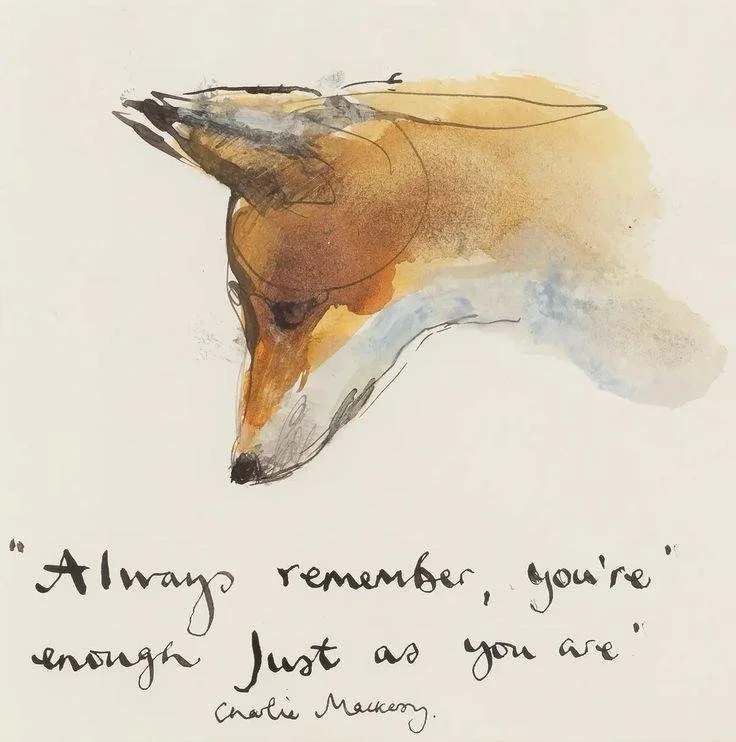 "Always remember, you're"
enough Just as you are"
Charlie Mackesy.